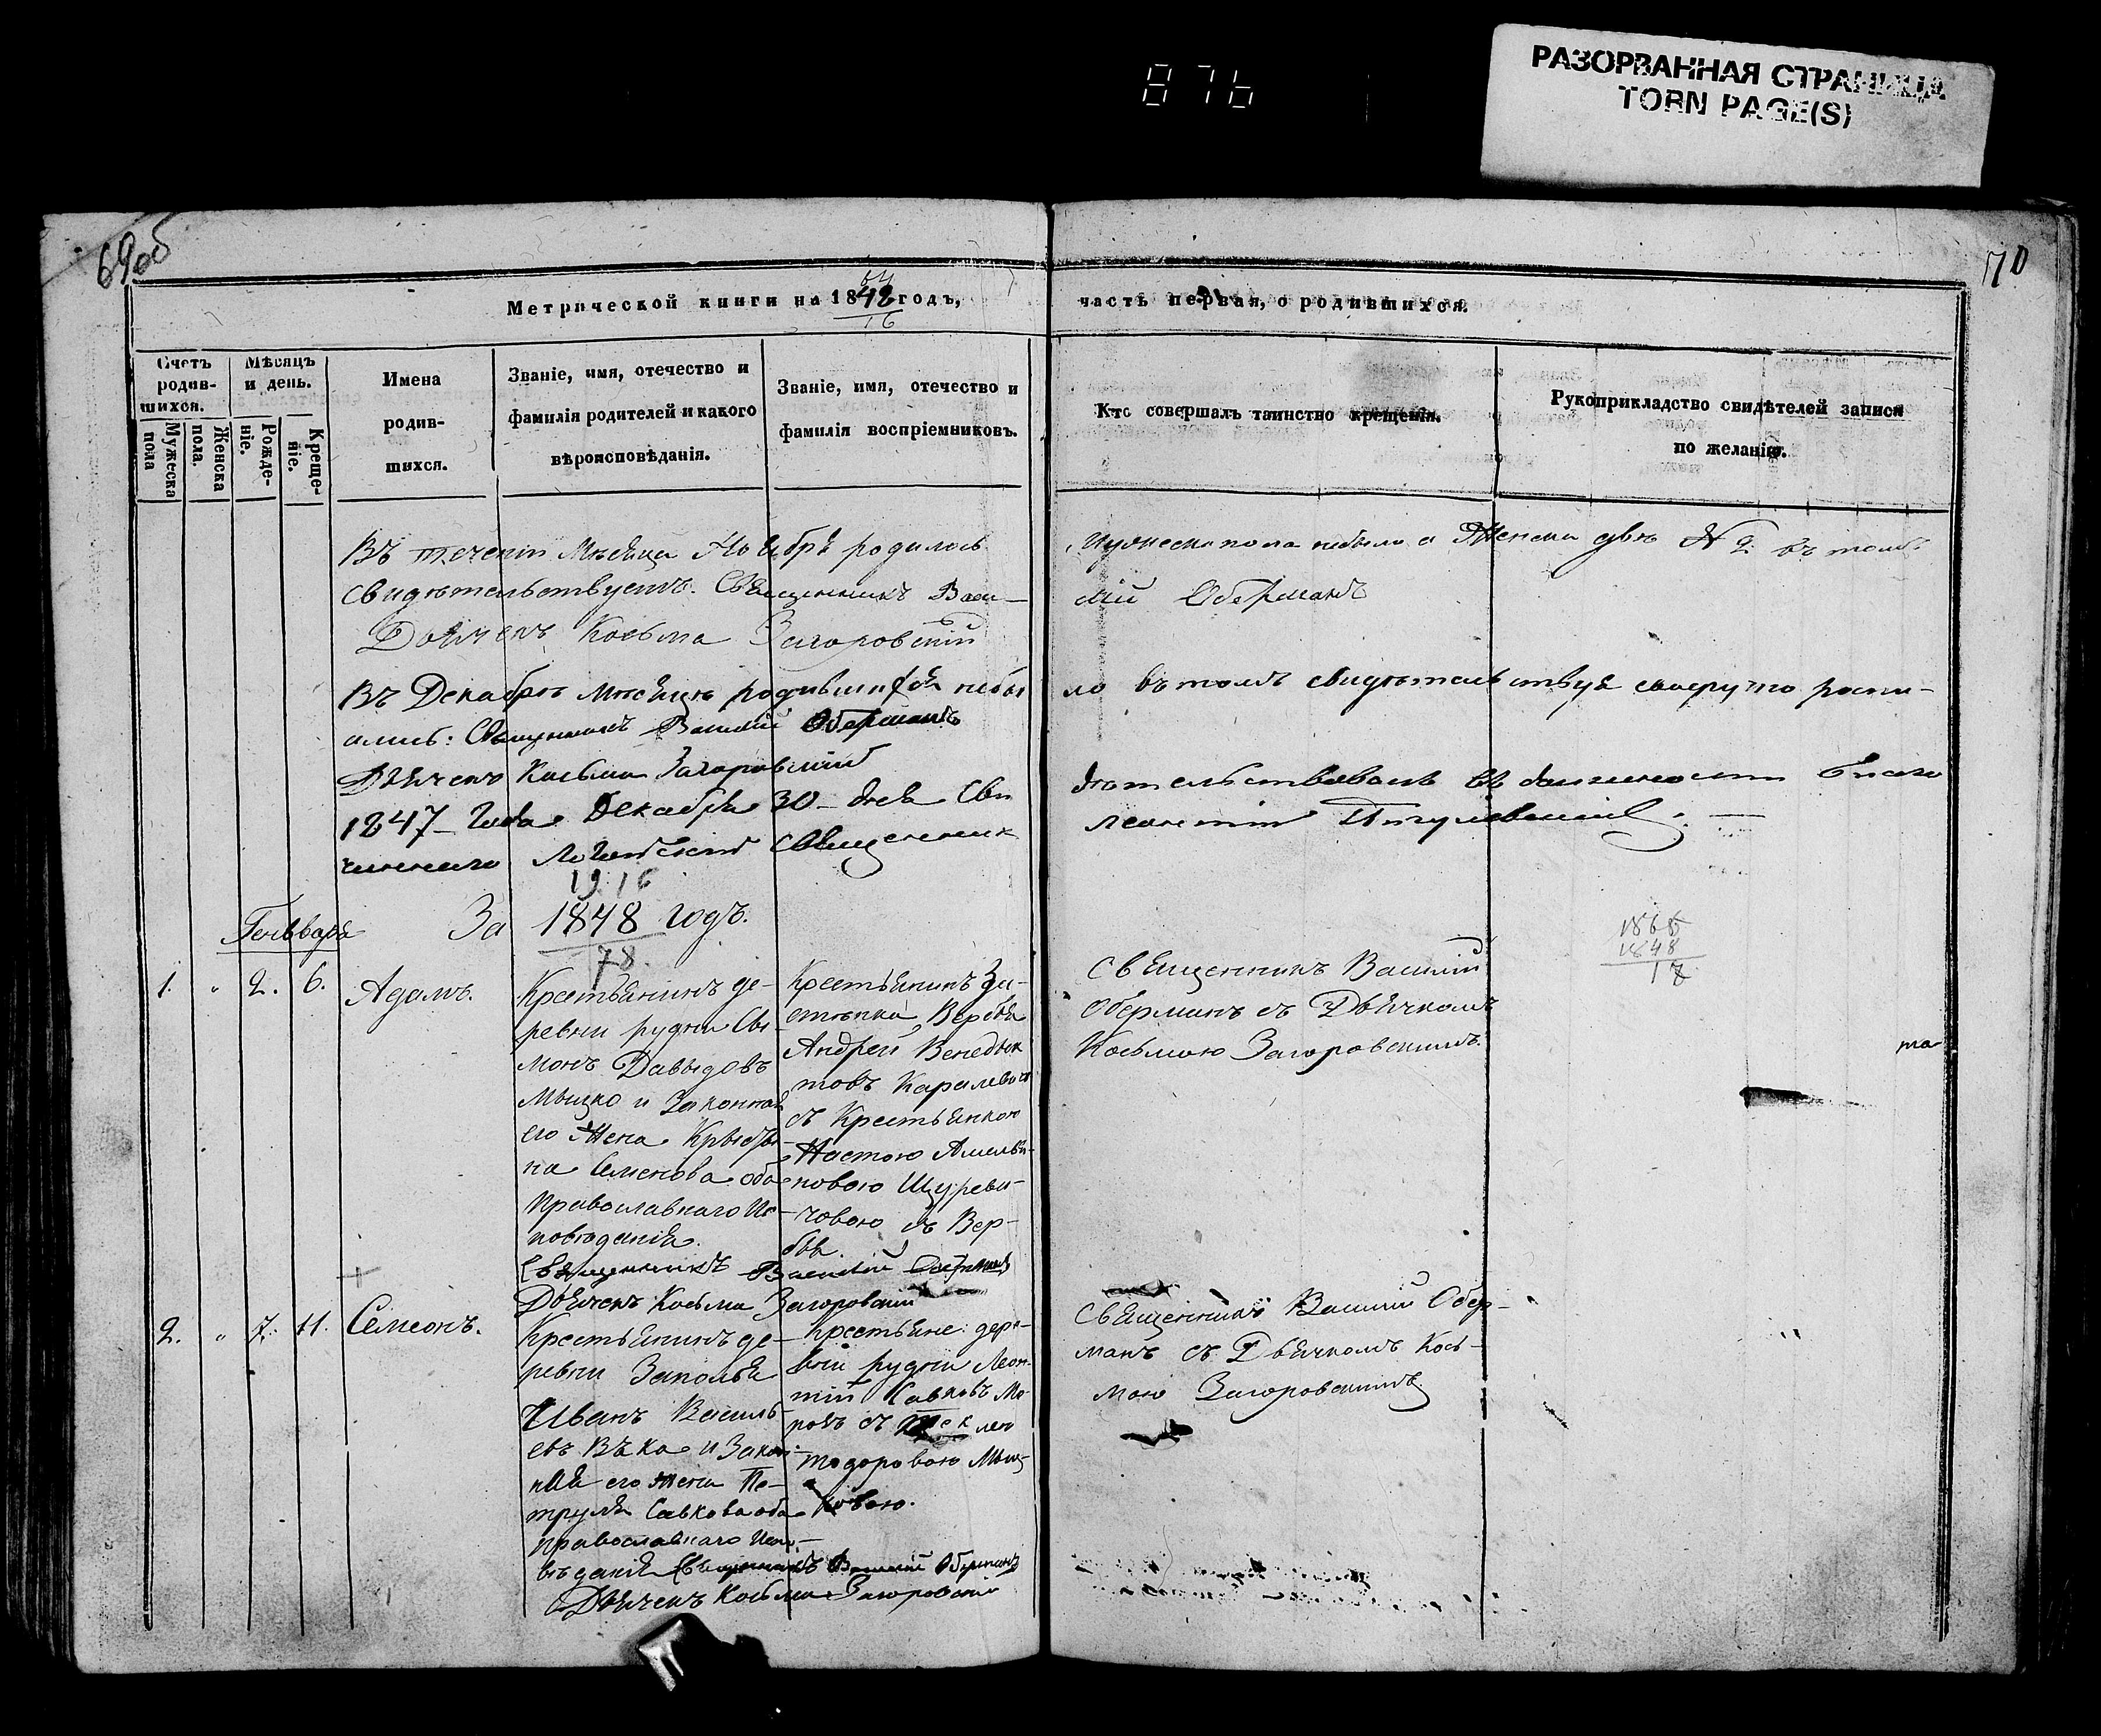 876
РАЗОРВАННАЯ СТРАНИЦА
TORN PAGE(S)
69об
70
Метрической книги на 1848 годъ,
часть первая, о родившихся.
16
Счетъ родив-шихся.
Мѣсяцъ и день.
Имена родив-шихся.
Званіе, имя, отечество и фамилія родителей и какого вѣроисповѣданія.
Званіе, имя, отечество и фамилія воспріемниковъ.
Кто совершалъ таинство крещенія.
Рукоприкладство свидѣтелей записи по желанію.
Мужеска пола
Женска пола.
Рожде-ніе.
Креще-ніе.
Въ теченіи Мѣсяца Ноября родилось
мужеска пола небыло а Женска двѣ № 2. въ томъ
свидѣтельствуемъ. Священникъ Васи-
лій Оберманъ
Дьячекъ Косьма Загоровскій
Въ Декабрѣ мѣсяцѣ родившихся небы
ло въ томъ свидѣтельствуя своеручно росписи-
Священникъ Василій Оберманъ
Дьячекъ Косьма Загоровскій
1847 года Декабря 30 дня Сви
дѣтельствовалъ въ должности благо
чиннаго священник
Леонтій
1916
Генваря
За 1848 годъ.
78
1865
1848
17
1.
"
2.
6.
Адамъ.
Крестьянинъ де-
ревни рудни Си
монъ Давыдовъ
Мышко и законная
его жена Крысты
на Семенова оба
Православнаго Ис-
повѣданія.
Священникъ Василій Оберманъ
Дьячекъ Косьма Загоровскій
Крестьянинъ за-
стѣнка Вербья
Андрей Венедык
товъ Каралевичъ
съ Крестьянкою
Настою Амелья-
новою Щуреви-
човою съ Вер-
бья.
Священникъ Василій
Оберманъ съ Дьячкомъ
Косьмою Загоровскимъ.
та
2.
"
7.
11.
Семіонъ.
Крестьянинъ де-
ревни Заполья
Иванъ Василь-
евъ Вѣка и Закон-
ная его жена Пе-
труля Савкова оба
православнаго Испо-
вѣданія Священникъ Василій Оберманъ
Дьячекъ Косьма Загоровскій
Крестьяне дере-
вни рудни Леон-
тій Савковъ Мо-
розъ съ Теклею
Тодоровою Мыш-
ковою.
Священникъ Василій Обер-
манъ съ Дьячкомъ Кось-
мою Загоровскимъ.